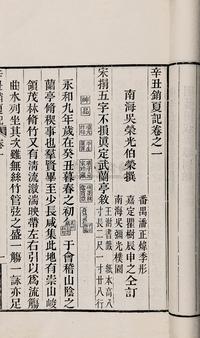 辛丑銷夏記卷之一
南海吳榮光伯榮撰
番禺潘正煒季彤
嘉定瞿樹辰申之仝訂
南海吳彌光樸園
宋搨五字不損真定武蘭亭敘
紙本高八寸
長二尺一寸廿八行
永和九年歲在癸丑暮春之初會于會稽山陰之
蘭亭脩稧事也羣賢畢至少長咸集此地有崇山峻
領茂林脩竹又有清流激湍暎帶左右引以為流觴
曲水列坐其次雖無絲竹管弦之盛一觴一詠亦足
辛丑銷夏記 卷一